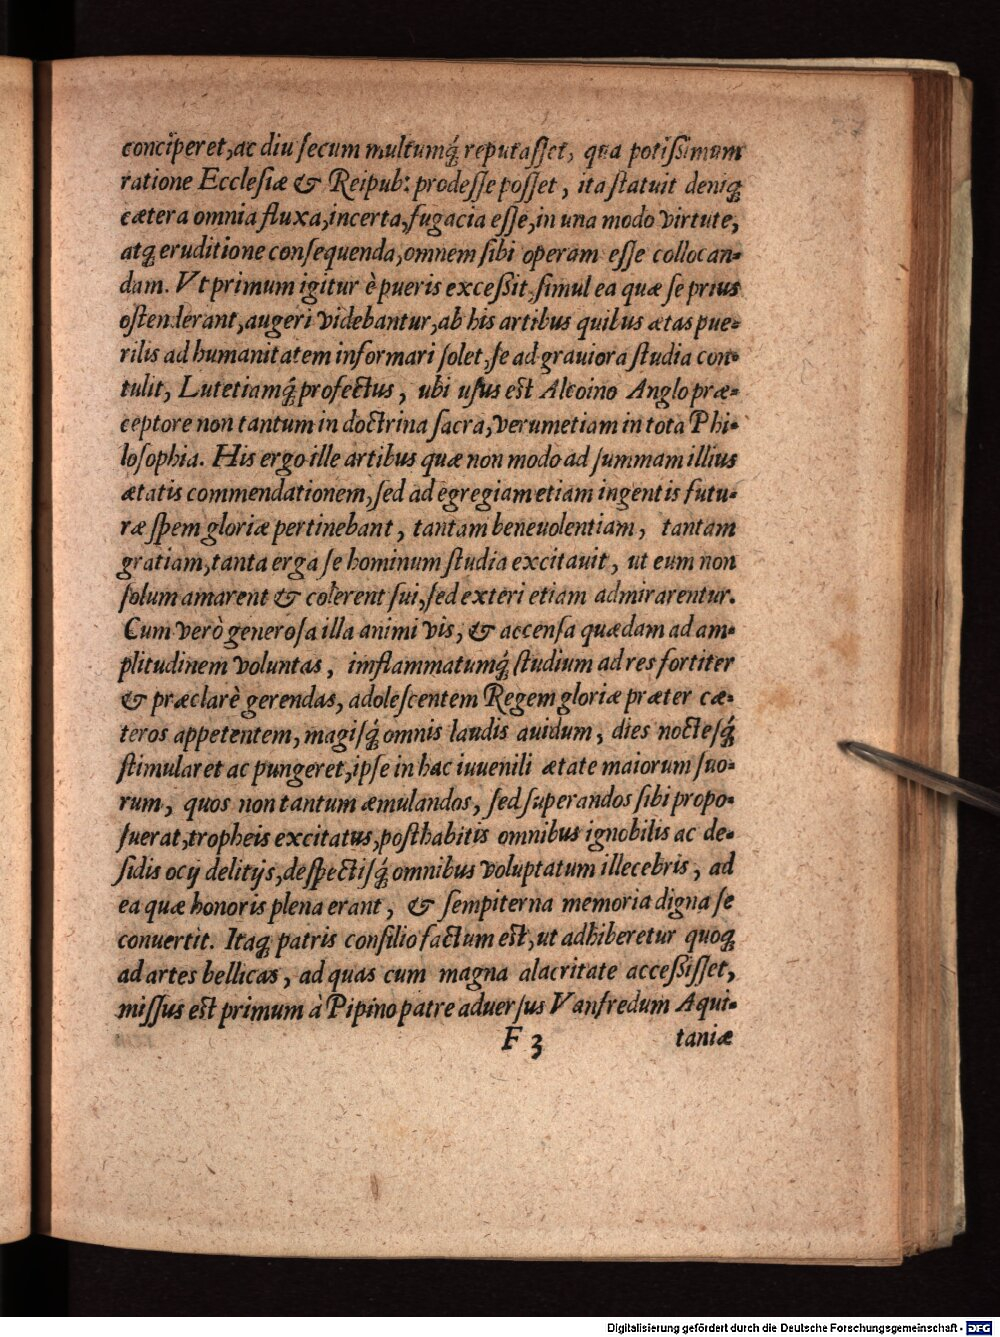 conciperet, ac diu ſecum multumq́ꝫ reputaſſet, qua potiſsimum
ratione Eccleſiæ & Reipub: prodeſſe poſſet, ita ſtatuit deniqꝫ
cætera omnia fluxa, incerta, fugacia eſſe, in una modo virtute,
atqꝫ eruditione conſequenda, omnem ſibi operam eſſe collocan-
dam. Vt primum igitur è pueris exceſsit, ſimul ea quæ ſe prius
oſtenderant, augeri videbantur, ab his artibus quibus ætas pue-
rilis ad humanitatem informari ſolet, ſe ad grauiora ſtudia con-
tulit, Lutetiamq́ꝫ profectus, ubi uſus est Alcoino Anglo præ-
ceptore non tantum in doctrina ſacra, verumetiam in tota Phi-
loſophia. His ergo ille artibus quæ non modo ad ſummam illius
ætatis commendationem, ſed ad egregiam etiam ingentis futu-
ræ ſpem gloriæ pertinebant, tantam beneuolentiam, tantam
gratiam, tanta erga ſe hominum ſtudia excitauit, ut eum non
ſolum amarent & colerent ſui, ſed exteri etiam admirarentur.
Cum verò generoſa illa animi vis, & accenſa quædam ad am-
plitudinem voluntas, imflammatumq́ꝫ ſtudium ad res fortiter
& præclarè gerendas, adoleſcentem Regem gloriæ præter cæ-
teros appetentem, magiſq́ꝫ omnis laudis auidum, dies nocteſq́ꝫ
ſtimularet ac pungeret, ipſe in hac iuuenili ætate maiorum ſuo-
rum, quos non tantum æmulandos, ſed ſuperandos ſibi propo-
ſuerat, tropheis excitatus, poſthabitis omnibus ignobilis ac de-
ſidis ocij delitijs, deſpectiſq́ꝫ omnibus voluptatum illecebris, ad
ea quæ honoris plena erant, & ſempiterna memoria digna ſe
conuertit. Itaqꝫ patris conſilio factum est, ut adhiberetur quoqꝫ
ad artes bellicas, ad quas cum magna alacritate acceſsiſſet,
miſſus est primum à Pipino patre aduerſus Vanfredum Aqui-
F 3 taniæ
Digitalisierung gefördert durch die Deutsche Forschungsgemeinschaft - DFG